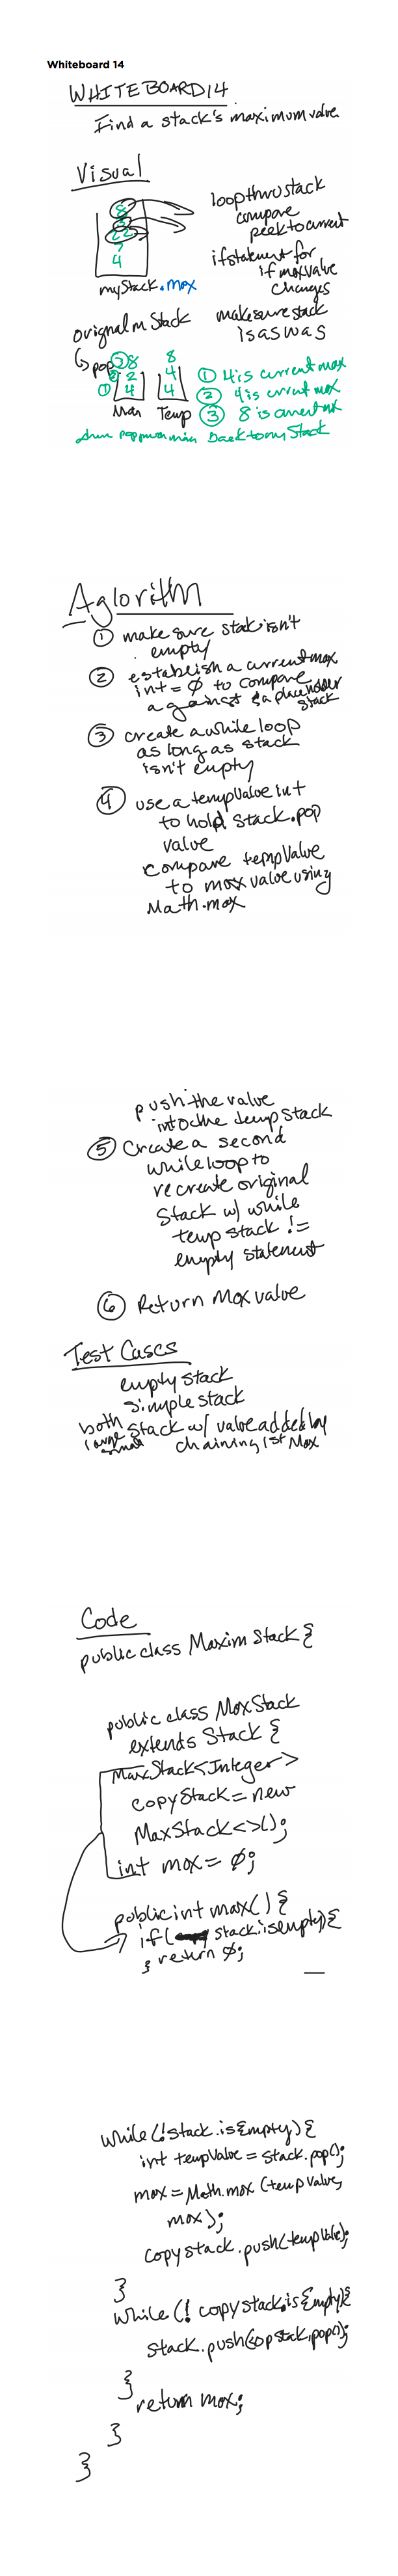 Whiteboard 14
WHITEBOARD 14
Find a stack's maximum value
Visual
8
22
7
4
myStack.max
loop thru stack
compare
peek to current
if statement for
if max value
changes
make sure stack
is as was
orignal m Stack
pop
② 8
② 2
① 4
Main
8
4
4
Temp
① 4 is current max
② 4 is currut max
③ 8 is current mx
back to my Stack
Aglorithm
① make sure stack isn't
empty
② establish a current max
int = 0 to compare
against & a placeholder
stack
③ create a while loop
as long as stack
isn't empty
④ use a tempValue int
to hold stack.pop
value
compare tempValue
to max value using
Math.max
push the value
into the temp stack
⑤ Create a second
while loop to
recreate original
Stack w/ while
temp stack !=
empty statement
⑥ Return Max value
Test Cases
empty stack
simple stack
both
large
small
stack w/ value added by
chaining 1st Max
Code
public class Maxim Stack {
public class MaxStack
extends Stack {
MaxStack<Integer>
copyStack = new
MaxStack<>();
int max = 0;
public int max() {
if( stack.isempty) {
} return 0;
while(!stack.isEmpty) {
int tempValue = stack.pop();
max = Math.max (tempValue,
max);
copystack.push(tempValue);
}
while (! copystack.isEmpty){
stack.push(copstack.pop());
}
return max;
}
}